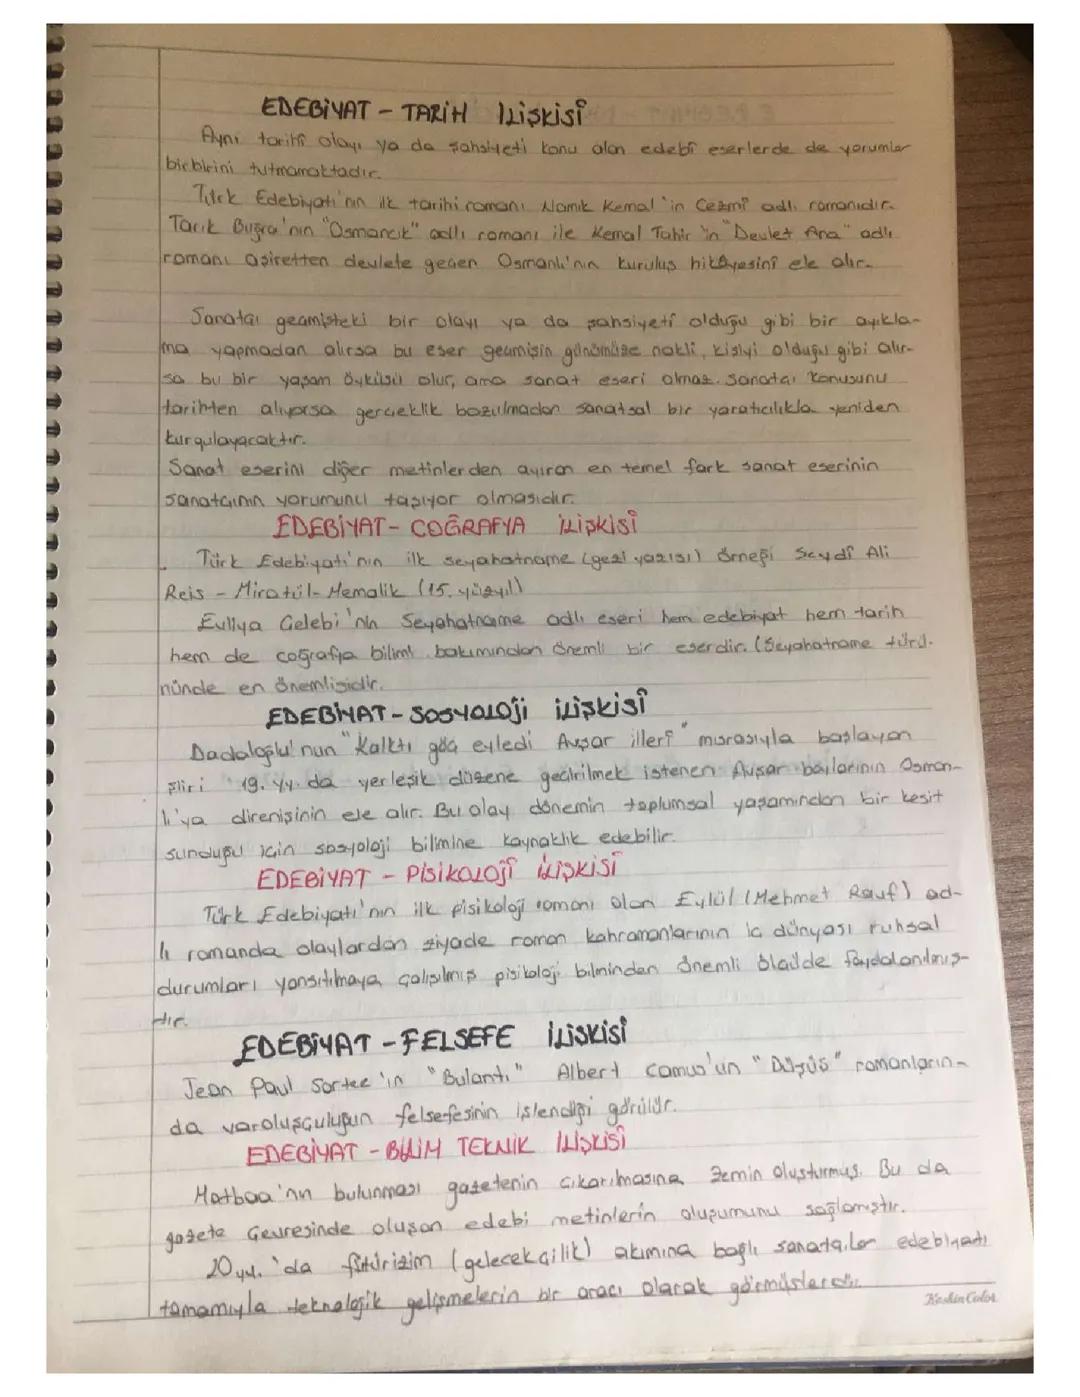 EDEBİYAT - TARİH İLİŞKİSİ
Aynı tarihî olayı ya da şahsiyeti konu alan edebî eserlerde de yorumlar
birbirini tutmamaktadır.
Türk Edebiyatı'nın ilk tarihi romanı Namık Kemal'in Cezmî adlı romanıdır.
Tarık Buğra'nın "Osmancık" adlı romanı ile Kemal Tahir'in "Devlet Ana" adlı
romanı aşiretten devlete geçen Osmanlı'nın kuruluş hikâyesini ele alır.
Sanatçı geçmişteki bir olayı ya da şahsiyeti olduğu gibi bir açıkla-
ma yapmadan alırsa bu eser geçmişin günümüze nakli, kişiyi olduğu gibi alır-
sa bu bir yaşam öyküsü olur, ama sanat eseri olmaz. Sanatçı konusunu
tarihten alıyorsa gerçeklik bozulmadan sanatsal bir yaratıcılıkla yeniden
kurgulayacaktır.
Sanat eserini diğer metinlerden ayıran en temel fark sanat eserinin
sanatçının yorumunu taşıyor olmasıdır.
EDEBİYAT - COĞRAFYA İLİŞKİSİ
Türk Edebiyatı'nın ilk seyahatname (gezi yazısı) örneği Seydî Ali
Reis - Miratül-Memalik (15. yüzyıl)
Evliya Çelebi'nin Seyahatname adlı eseri hem edebiyat hem tarih
hem de coğrafya bilimi bakımından önemli bir eserdir. (Seyahatname türü-
nünde en önemlisidir.
EDEBİYAT - SOSYOLOJİ İLİŞKİSİ
Dadaloğlu'nun "Kalktı göç eyledi Avşar illeri" mısrasıyla başlayan
şiiri 19. yy. da yerleşik düzene geçirilmek istenen Avşar boylarının Osman-
lı'ya direnişinin ele alır. Bu olay dönemin toplumsal yaşamından bir kesit
sunduğu için sosyoloji bilimine kaynaklık edebilir.
EDEBİYAT - PİSİKOLOJİ İLİŞKİSİ
Türk Edebiyatı'nın ilk pisikoloji romanı olan Eylül (Mehmet Rauf) ad-
lı romanda olaylardan ziyade roman kahramanlarının iç dünyası ruhsal
durumları yansıtılmaya çalışılmış pisikoloji bilminden önemli ölçüde faydalanılmış-
tır.
EDEBİYAT - FELSEFE İLİŞKİSİ
Jean Paul Sartre'ın "Bulantı" Albert Camus'un "Düşüş" romanların-
da varoluşçuluğun felsefesinin işlendiği görülür.
EDEBİYAT - BİLİM TEKNİK İLİŞKİSİ
Matbaa'nın bulunması gazetenin çıkarılmasına zemin oluşturmuş. Bu da
gazete çevresinde oluşan edebi metinlerin oluşumunu sağlamıştır.
20 yy. 'da fütürizim (gelecekçilik) akımına bağlı sanatçılar edebiyatı
tamamıyla teknolojik gelişmelerin bir aracı olarak görmüşlerdir.
Keskin Color